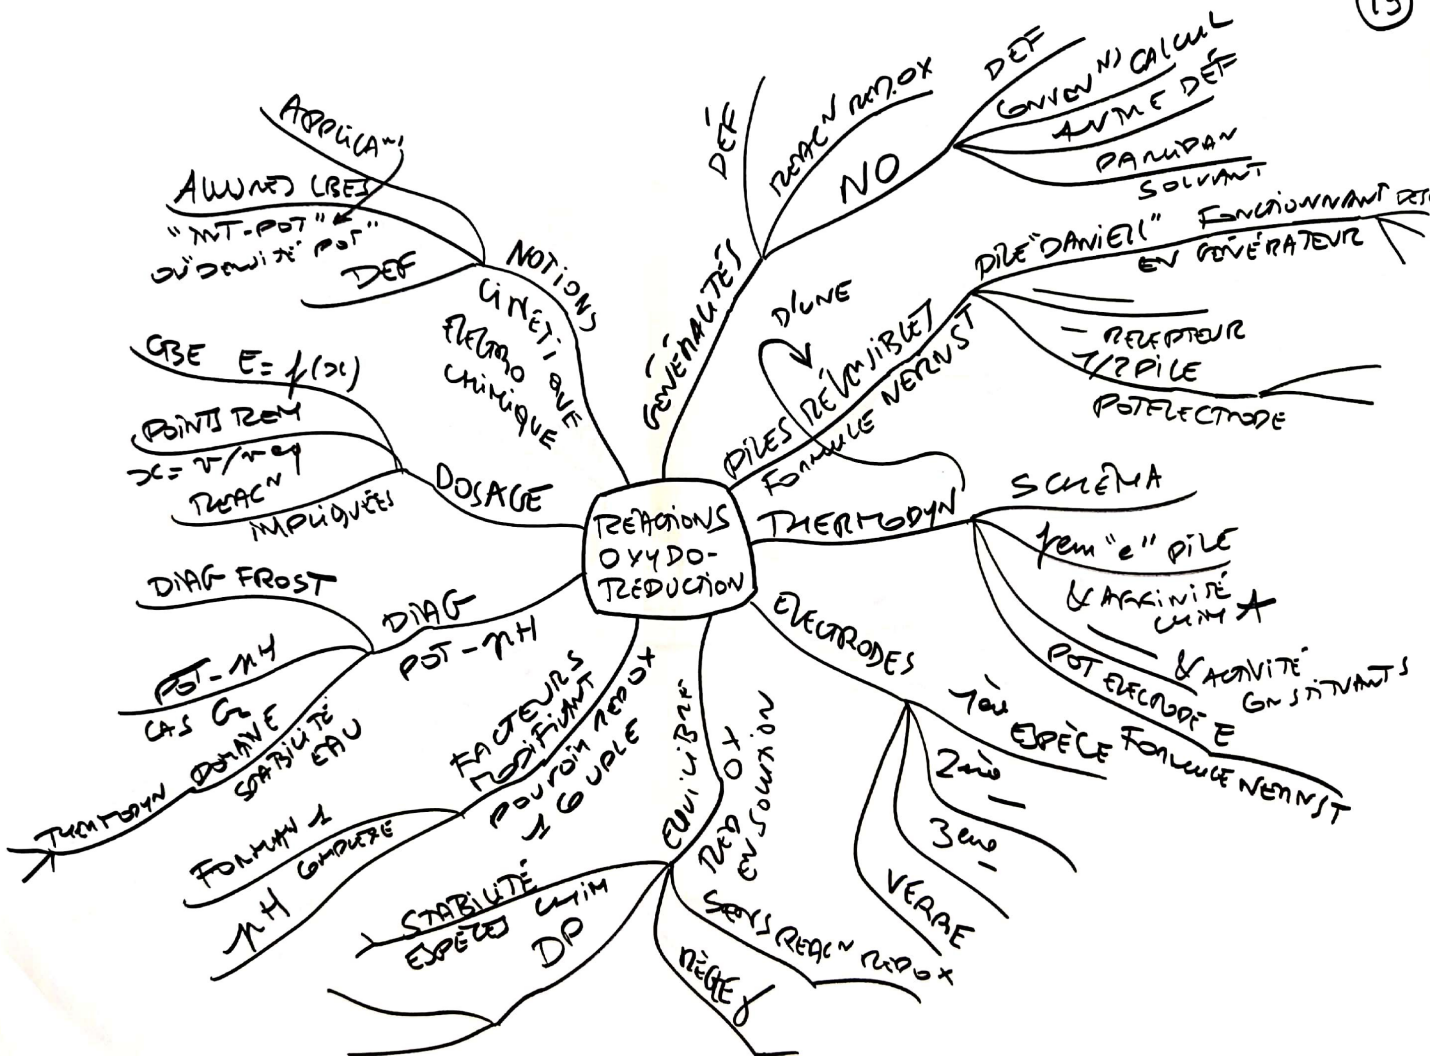 13
RÉACTIONS
OXYDO-
RÉDUCTION
GÉNÉRALITÉS
DÉF
RÉAC^N REDOX
NO
DEF
CONVEN^N) CALCUL
AUTRE DÉF
SOLVANT
PILES RÉVERSIBLES
FORMULE NERNST
D'UNE
PILE "DANIELL" FONCTIONNANT
EN GÉNÉRATEUR
— RECEPTEUR
1/2 PILE
POT ELECTRODE
THERMODYN
SCHÉMA
fem "e" PILE
& AFFINITÉ
CHIM A
& ACTIVITÉ
CONSTITUANTS
POT ELECTRODE E
FORMULE NERNST
ELECTRODES
1ère
ESPÈCE
2ème
3ème
VERRE
EQUILIBRE
RED OX
EN SOLUTION
SENS REAC^N REDOX
RÈGLE γ
DP
STABILITÉ
ESPÈCES CHIM
FACTEURS
MODIFIANT
POUVOIR REDOX
1 COUPLE
FORMAN 1
COMPLEXE
pH
DIAG
POT-pH
DIAG FROST
POT-pH
CAS
DOMAINE
STABILITÉ
EAU
THERMODYN
DOSAGE
CBE E=f(x)
POINTS REM
x= v/v eq
REAC^N
IMPLIQUÉES
NOTIONS
CINÉTIQUE
ELECTRO
CHIMIQUE
APPLICA^N)
ALLURES CBES
"INT-POT"
OU "DENSITÉ POT"
DEF